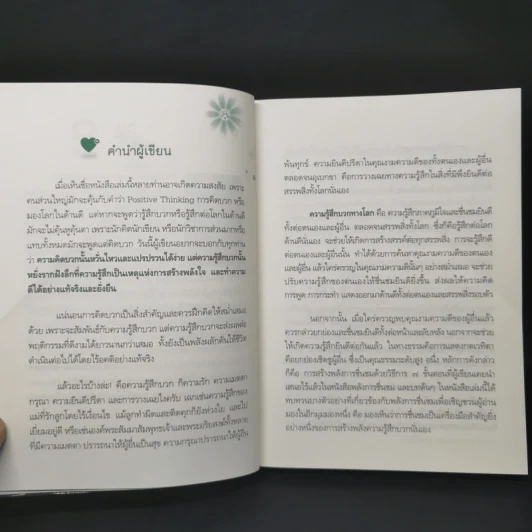 คำนำผู้เขียน
เมื่อเห็นชื่อหนังสือเล่มนี้หลายท่านอาจเกิดความสงสัย เพราะ
คนส่วนใหญ่มักจะคุ้นกับคำว่า Positive Thinking การคิดบวก หรือ
มองโลกในด้านดี แต่หากจะพูดว่ารู้สึกบวกหรือรู้สึกต่อโลกในด้านดี
มักจะไม่คุ้นหูคุ้นตา เพราะนักคิดนักเขียน หรือนักวิชาการส่วนมากหรือ
แทบทั้งหมดมักจะพูดแต่คิดบวก วันนี้ผู้เขียนอยากจะบอกกับทุกท่าน
ว่า ความคิดบวกนั้นหวั่นไหวและแปรปรวนได้ง่าย แต่ความรู้สึกบวกนั้น
หยั่งรากฝังลึกที่ความรู้สึกเป็นเหตุแห่งการสร้างพลังใจ และทำความ
ดีได้อย่างแท้จริงและยั่งยืน
แน่นอนการคิดบวกเป็นสิ่งสำคัญและควรฝึกคิดให้สม่ำเสมอ
ด้วย เพราะจะสัมพันธ์กับความรู้สึกบวก แต่ความรู้สึกบวกจะส่งผลต่อ
พฤติกรรมที่ดีงามได้ยาวนานกว่าเสมอ ทั้งยังเป็นพลังผลักดันให้ชีวิต
ดำเนินต่อไปได้โดยไร้อคติอย่างแท้จริง
แล้วอะไรบ้างล่ะ! คือความรู้สึกบวก ก็ความรัก ความเมตตา
กรุณา ความยินดีปรีดา และการวางเฉยไงครับ เฉกเช่นความรู้สึกของ
แม่ที่รักลูกโดยไร้เงื่อนไข แม้ลูกทำผิดและติดคุกก็ยังห่วงใย และไป
เยี่ยมอยู่ดี หรือเช่นองค์พระสัมมาสัมพุทธเจ้าและพระอริยสงฆ์ทั้งหลาย
ที่มีความเมตตา ปรารถนาให้ผู้อื่นเป็นสุข ความกรุณาปรารถนาให้ผู้อื่น
พ้นทุกข์ ความยินดีปรีดาในคุณงามความดีของทั้งตนเองและผู้อื่น
ตลอดจนอุเบกขา คือการวางเฉยทางความรู้สึกในสิ่งที่มีพึงยินดีต่อ
สรรพสิ่งทั้งโลกนั่นเอง
ความรู้สึกบวกทางโลก คือ ความรู้สึกภาคภูมิใจและชื่นชมยินดี
ทั้งต่อตนเองและผู้อื่น ตลอดจนสรรพสิ่งทั้งโลก ซึ่งการรู้สึกต่อโลก
ด้านดีนั่นเอง จะช่วยให้เกิดการสร้างสรรค์ต่อทุกสรรพสิ่ง การจะรู้สึกดี
ต่อตนเองและผู้อื่นนั้น ทำได้ด้วยการค้นหาคุณงามความดีของตนเอง
และผู้อื่น แล้วใคร่ครวญในคุณงามความดีนั้นๆ อย่างสม่ำเสมอ จะช่วย
ปรับความรู้สึกของตนเองให้ชื่นชมยินดียิ่งขึ้น ส่งผลให้ความคิด
การพูด การกระทำ แสดงออกมาด้านดีทั้งต่อตนเองและสรรพสิ่งรอบตัว
นอกจากนั้น เมื่อใคร่ครวญพบคุณงามความดีของผู้อื่นแล้ว
ควรกล่าวยกย่องและชื่นชมยินดีทั้งต่อหน้าและลับหลัง นอกจากจะช่วย
ให้เกิดความรู้สึกยินดีต่อกันแล้ว ในทางธรรมคือการแสดงถึงมุทิตา
คือยกย่องเชิดชูผู้อื่น ซึ่งเป็นคุณธรรมระดับสูง อนึ่ง หลักการดังกล่าว
ก็คือ การสร้างพลังการชื่นชมด้วยวิธีการ ๗ ขั้นตอนที่ผู้เขียนเคยนำ
เสนอไว้แล้วในหนังสือพลังการชื่นชม และบทต้นๆ ในหนังสือเล่มนี้ได้
ทบทวนบางตัวอย่างที่เกี่ยวข้องกับพลังการชื่นชมเพื่อเชิญชวนผู้อ่าน
มองในอีกมุมมองหนึ่ง คือ มองเห็นว่าการชื่นชมเป็นเครื่องมือสำคัญยิ่ง
อย่างหนึ่งของการสร้างพลังความรู้สึกบวกนั่นเอง